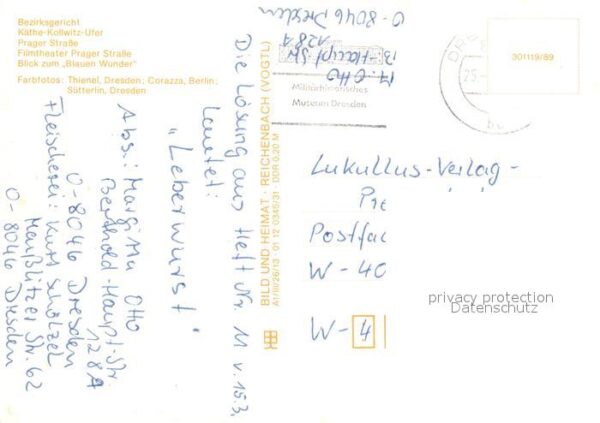 Bezirksgericht
Käthe-Kollwitz-Ufer
Prager Straße
Filmtheater Prager Straße
Blick zum „Blauen Wunder"
Farbfotos: Thienel, Dresden; Corazza, Berlin;
Sütterlin, Dresden
Abs.: Margitta Otto
Berthold-Haupt-Str.
128A
O-8046 Dresden
Fleischerei: Kurt Scholzel
Maußlitzer Str. 62
O-8046 Dresden
Die Lösung aus Heft Nr. 11 v. 15.3.
Lautet:
„Leberwurst"
BILD UND HEIMAT · REICHENBACH (VOGTL)
A1/III/26/13 · 01 12 0345/31 · DDR 0,20 M
M. Otto
B-Haupt Str
128A
O-8046 Dresden
Militärhistorisches
Museum Dresden
301119/89
Lukullus-Verlag-
Postfac
W-40
W-4
privacy protection
Datenschutz